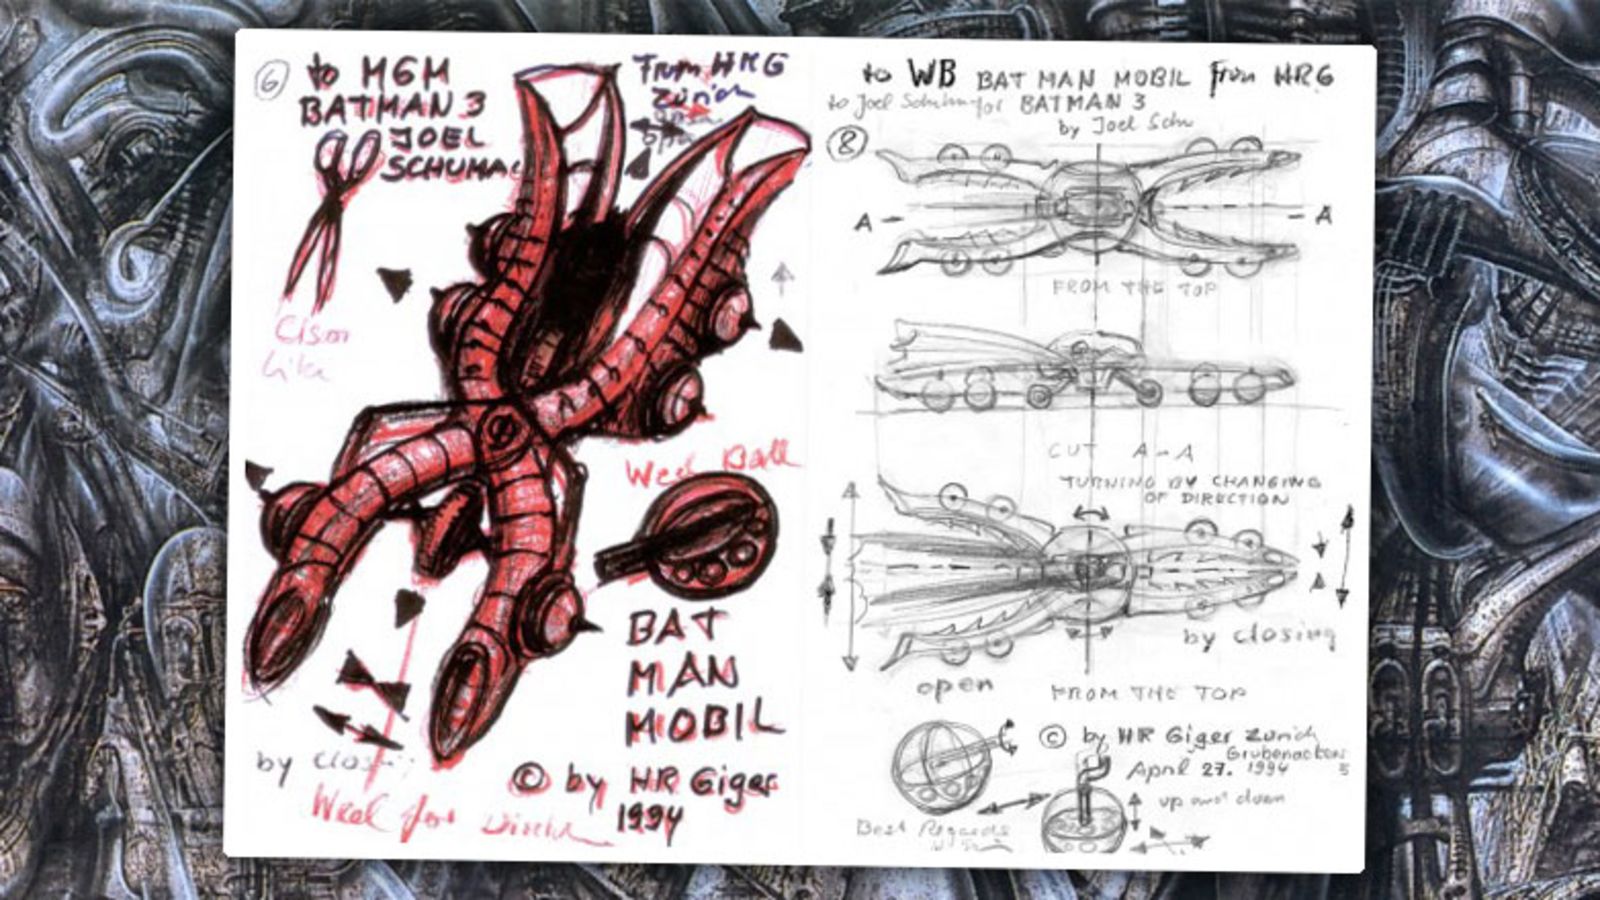 6
to MGM
BATMAN 3
JOEL
SCHUMAC
From HRG
Zürich
Open
Cisor
Like
Weel Ball
BAT
MAN
MOBIL
by closi
Weel for
© by HR Giger
1994
to WB BAT MAN MOBIL from HRG
to Joel Schuma for BATMAN 3
by Joel Schu
8
A
A
FROM THE TOP
CUT A-A
TURNING BY CHANGING
OF DIRECTION
by closing
open
FROM THE TOP
© by HR Giger Zürich
Grubenacker
April 27. 1994 5
up and down
Best Regards